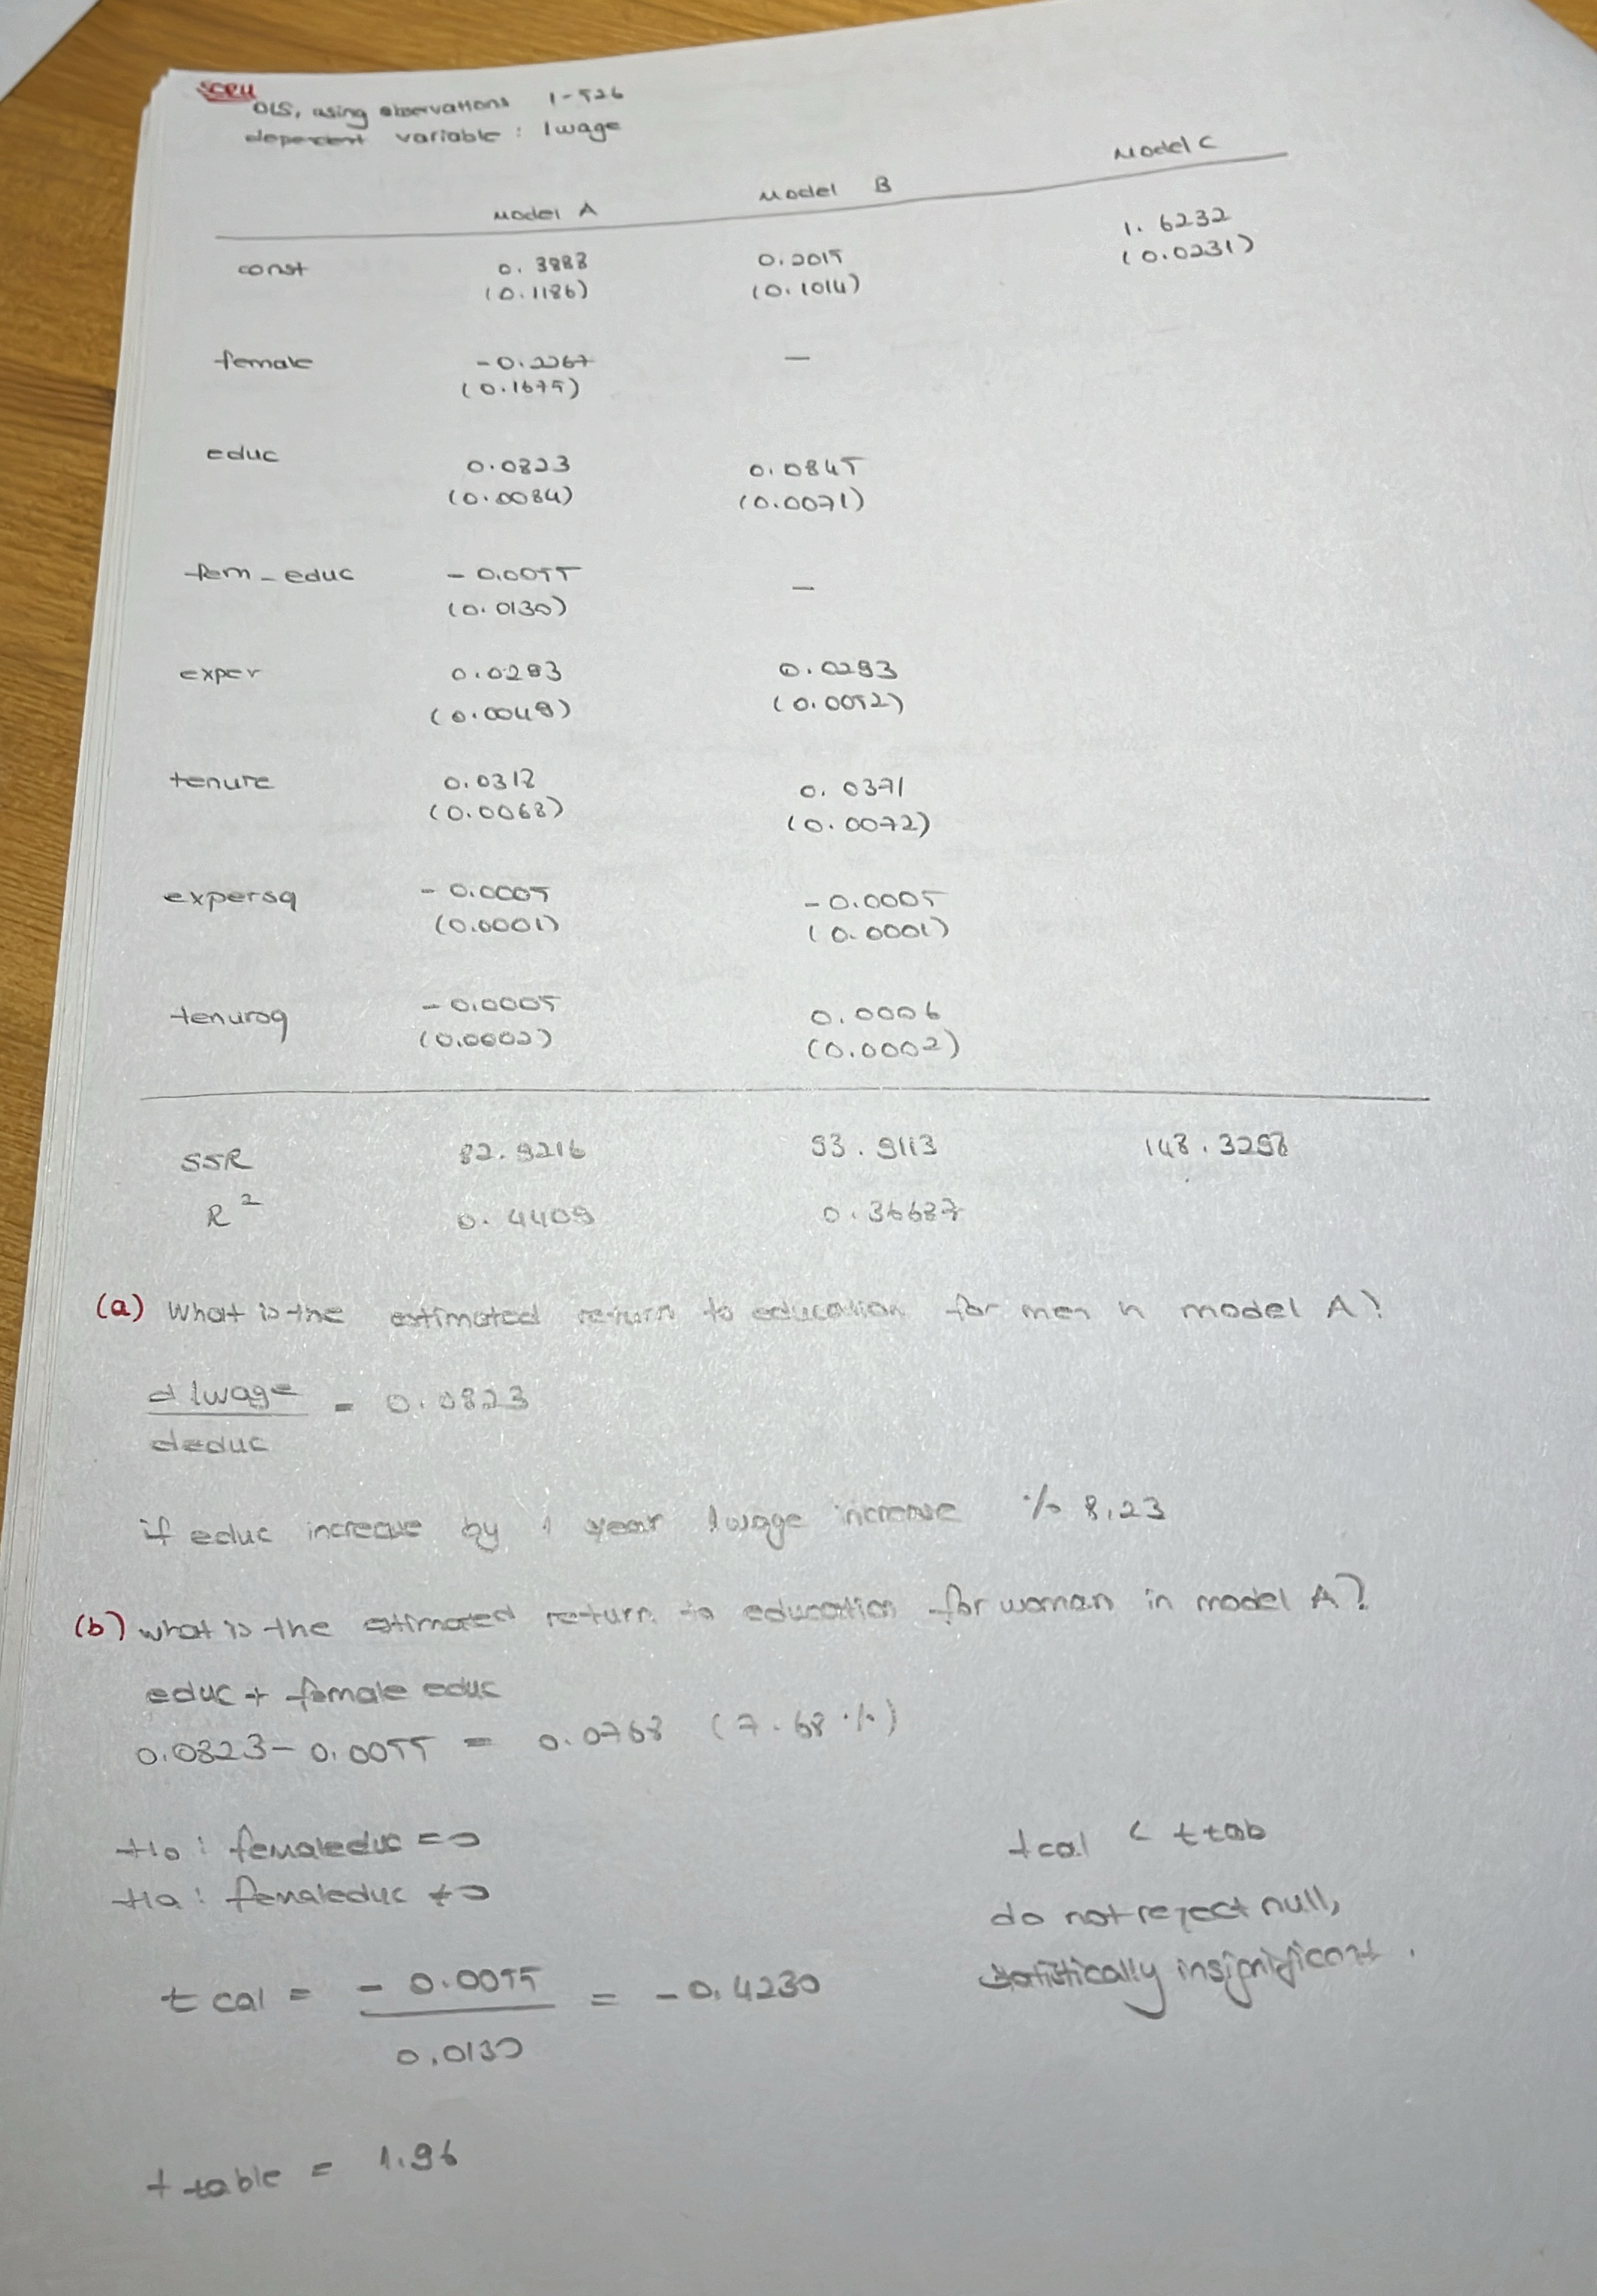 SORU
OLS, using observations 1-526
dependent variable : lwage
Model A Model B Model C
const 0.3888 0.2015 1.6232
(0.1186) (0.1014) (0.0231)
female -0.2267 —
(0.1675)
educ 0.0823 0.0845
(0.0084) (0.0071)
fem_educ -0.0055 —
(0.0130)
exper 0.0293 0.0293
(0.0049) (0.0052)
tenure 0.0312 0.0371
(0.0068) (0.0072)
expersq -0.0005 -0.0005
(0.0001) (0.0001)
tenursq -0.0005 0.0006
(0.0002) (0.0002)
SSR 82.9216 93.9113 148.3298
R² 0.4409 0.36687
(a) What is the estimated return to education for men in model A?
d lwage / deduc = 0.0823
if educ increase by 1 year lwage increase % 8,23
(b) what is the estimated return to education for woman in model A?
educ + female educ
0.0823 - 0.0055 = 0.0768 (7.68 %)
H0 : femaleduc = 0
Ha : femaleduc ≠ 0
t cal < t tab
do not reject null,
statistically insignificant.
t cal = -0.0055 / 0.0130 = -0.4230
t table = 1.96